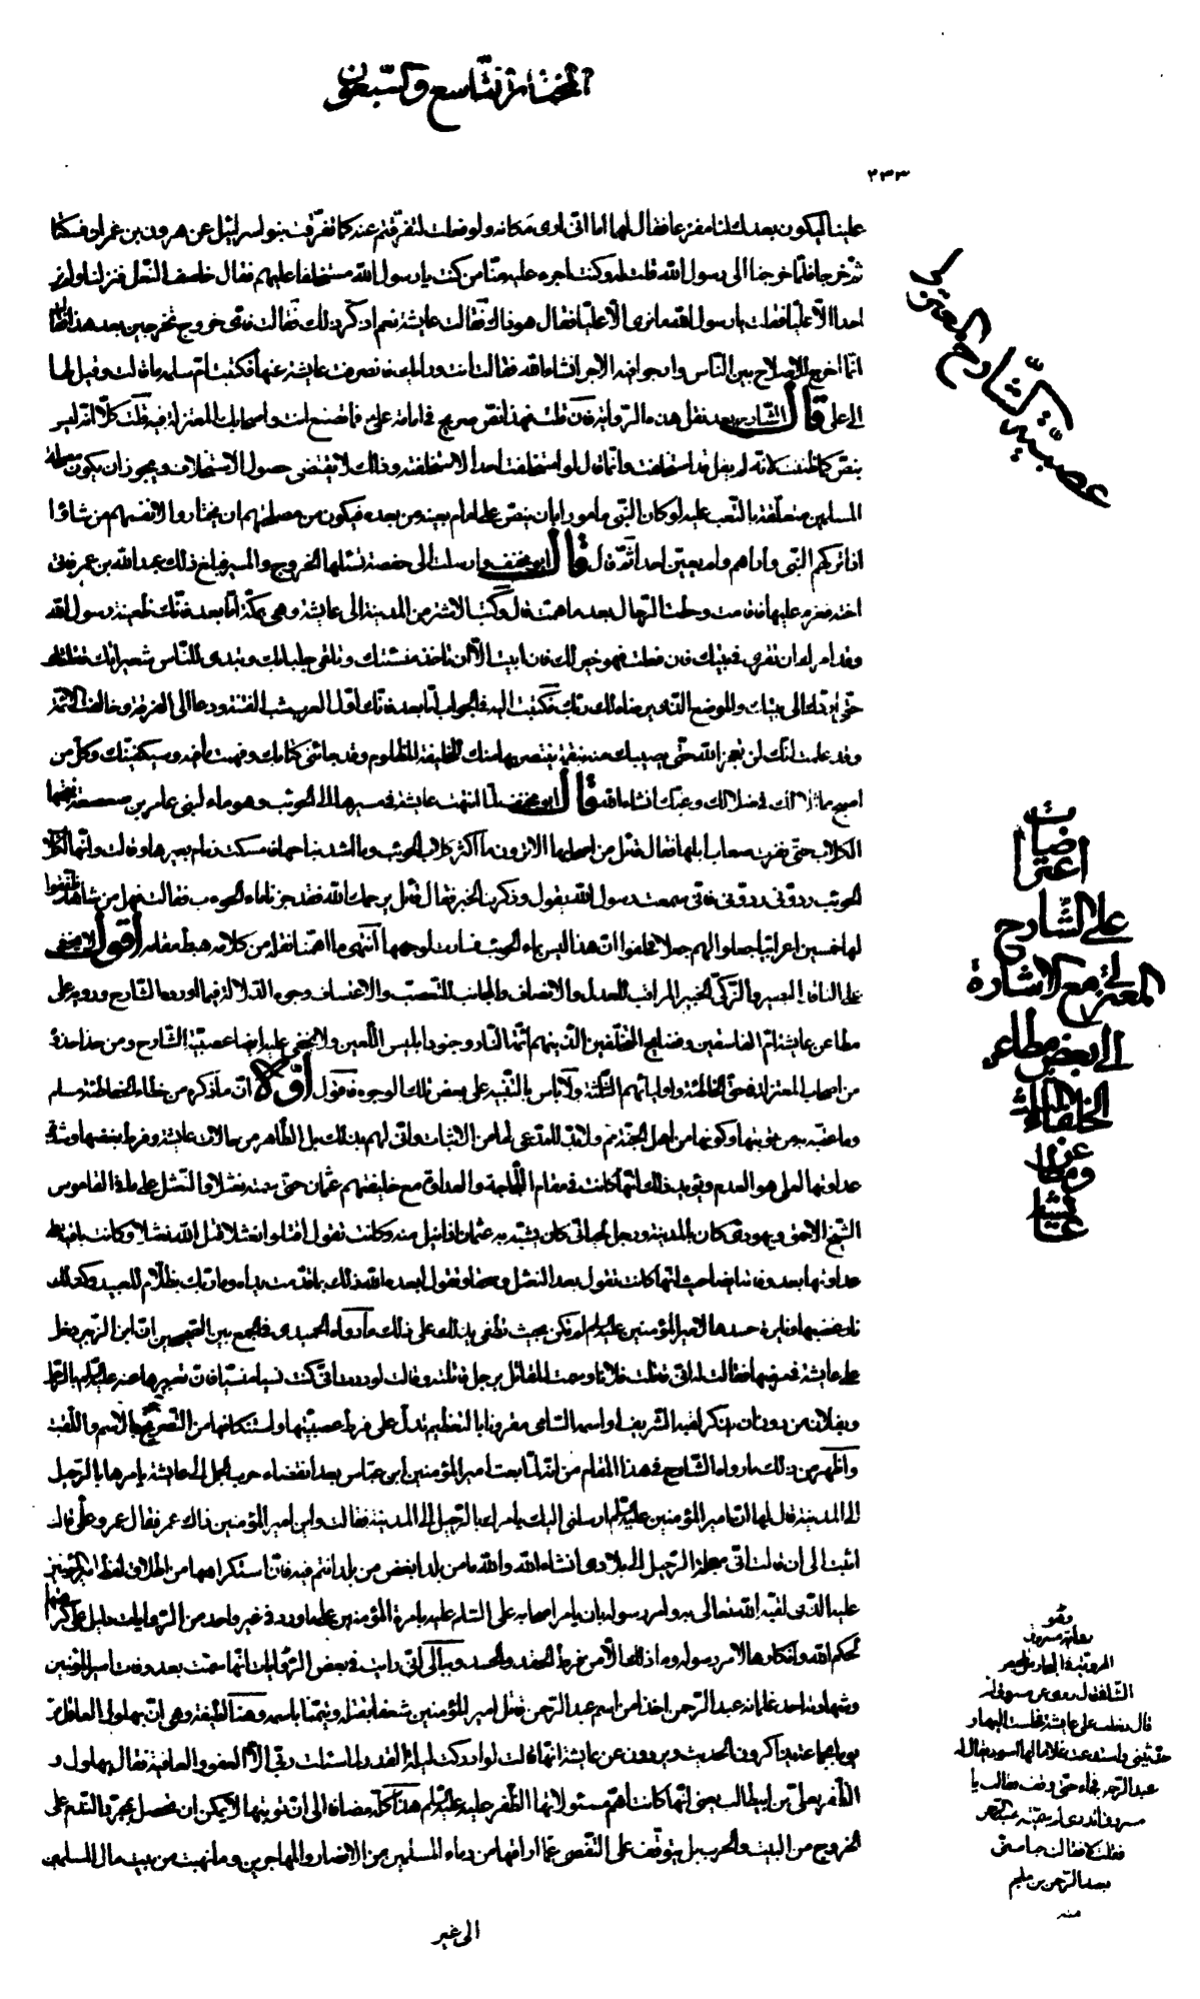 المختار التاسع والسبعون
٢٣٣
علينا ليكون بعدك لنا مفزعا فقال لهما اما انى ارى مكانه ولو فعلت لتفرقتم عنه كما تفرقت بنو اسرائيل عن هرون بن عمران فسكتا
ثم خرجا فلما خرجنا الى رسول الله قلت له وكنت اجرء عليه منا من كنت يا رسول الله مستخلفا عليهم فقال خاصف النعل فنزلنا ولم نر
احدا الا عليا فقلت يا رسول الله ما نرى الا عليا فقال هو ذاك فقالت عايشة نعم اذكر ذلك فقالت فاى خروج تخرجين بعد هذا فقالت
انما اخرج للاصلاح بين الناس وارجو فيه الاجر انشاء الله فقالت انت ورايك فانصرفت عايشة عنها فكتبت ام سلمه ما قالت وقيل لها
الى على قال الشارح بعد نقل هذه الرواية فان قلت فهذا نص صريح فى امامة على فما تصنع انت واصحابك المعتزلة فيه قلت كلا انه ليس
بنص كما ظننت لانه لم يقل قد استخلفت وانما قال لو استخلفت احدا لاستخلفته وذلك لا يقتضى حصول الاستخلاف ويجوز ان يكون مصلحة
المسلمين متعلقة بالنص عليه لو كان النبى مامورا بان ينص على امام بعينه من بعده فيكون من مصلحتهم ان يختاروا لانفسهم من شاؤا
اذا تركهم النبى واراهم ولم يعين احدا ثم قال قال ابو مخنف وارسلت الى حفصة تسئلها الخروج والمسير فبلغ ذلك عبد الله بن عمر فاتى
اخته فعزم عليها فاقامت وحطت الرحال بعد ما همت قال وكتب الاشتر من المدينة الى عايشة وهى بمكة اما بعد فانك ظعينة رسول الله
وقد امرك ان تقرى فى بيتك فان فعلت فهو خير لك فان ابيت الا ان تاخذى منسئتك وتلقى جلبابك وتبدى للناس شعيراتك قاتلتك
حتى اردك الى بيتك والموضع الذى يرضاه لك ربك فكتبت اليه فى الجواب اما بعد فانك اول العرب شب الفتنة ودعا الى الفرقة وخالف الائمة
وقد علمت انك لن تعجز الله حتى يصيبك منه بنقمة ينتصر بها منك للخليفة المظلوم وقد جائنى كتابك وفهمت ما فيه وسيكفينك وكل من
اصبح مماثلا لك فى ضلالك وغيك انشاء الله قال ابو مخنف لما انتهت عايشة فى مسيرها الى الحوئب وهو ماء لبنى عامر بن صعصعة نبحتها
الكلاب حتى نفرت صعاب ابلها فقال قائل من اصحابها الا ترون ما اكثر كلاب الحوئب وما اشد نباحها فامسكت زمام بعيرها وقالت وانها لكلاب
الحوئب ردونى ردونى فانى سمعت رسول الله يقول وذكرت الخبر فقال قائل يرحمك الله فقد جزنا ماء الحوءب فقالت فهل من شاهد فلفقوا
لها خمسين اعرابيا جعلوا لهم جعلا فحلفوا ان هذا ليس بماء الحوئب فسارت لوجهها انتهى ما اهمنا نقله من كلامه هبط مقامه اقول لا يخفى
على الناقد البصير والزكى الخبير المراقب للعدل والانصاف والمجانب للتعصب والاعتساف وجوه الدلالة فيما اورده الشارح ورويه على
مطاعن عايشة ام الفاسقين وفضايح المخلفين الذين هم ائمة النار وجنود ابليس اللعين ولا يخفى عليه ايضا عصبية الشارح ومن حذا حذوه
من اصحاب المعتزلة فى حق الخاطئة واوليائهم الثلثة ولا باس بالتنبيه على بعض تلك الوجوه فاقول اولا ان ما ذكره من خطاء الخاطئة مسلم
وما عقبه به من توبتها وكونها من اهل الجنة ممنوع ولا بد للمدعى لها من الاثبات وانى لهم بذلك بل الظاهر من حالات عايشة وفرط بغضها وشدة
عداوتها لعلى هو العدم ويؤيد ذلك انها كانت فى مقام اللجاجة والعداوة مع خليفتهم عثمان حتى سمته نعثلا والنعثل على ما فى القاموس
الشيخ الاحمق ويهودى كان بالمدينة ورجل لحيانى كان يشبه به عثمان اذا نيل منه وكانت تقول اقتلوا نعثلا قتل الله نعثلا وكانت باقية على
عداوتها بعد وفاته ايضا حيث انها كانت تقول بعد النعثل وسحقا وتقول ابعده الله ذلك بما قدمت يداه وما ربك بظلام للعبيد وكذلك
نار غضبها ونايرة حسدها لامير المؤمنين عليه السلام لم تكن بحيث تطفى يدلك على ذلك ما رواه الحميدى فى الجمع بين الصحيحين ان ابن الزبير دخل
على عايشة فى مرضها فقالت له انى قاتلت فلانا وسمت المقاتل برجل قاتلته وقالت لوددت انى كنت نسيا منسيا فان تعبيرها عنه عليه السلام بالرجل
وبفلان من دون ان تذكر لقبه الشريف او اسمه السامى مقرونا بالتعظيم تدل على فرط عصبيتها واستنكافها من التصريح بالاسم واللقب
واظهر من ذلك ما رواه الشارح فى هذا المقام من انه لما بعث امير المؤمنين ابن عباس بعد انقضاء حرب الجمل الى عايشة يامرها بالرحيل
الى المدينة قال لها ان امير المؤمنين عليه السلام ارسلنى اليك يامرك بالرحيل الى المدينة فقالت واين امير المؤمنين ذاك عمر فقال عمر وعلى قالت
ابيت الى ان قالت انى معجلة الرحيل الى بلادى انشاء الله والله ما من بلد ابغض من بلد انتم فيه فان استكراهها من اطلاق لفظ امير المؤمنين
عليه الذى لقبه الله تعالى به وامر رسوله بان يامر اصحابه على السلام عليه بامرة المؤمنين على ما ورد فى غير واحد من الروايات دليل على كراهتها
لحكم الله وانكارها لامر رسوله وما ذلك الا من فرط الحقد والحسد وببالى انى رايت فى بعض الروايات انها سمت بعد وفات امير المؤمنين
وشهادته احد غلمانه عبد الرحمن اخذا من اسم عبد الرحمن قاتل امير المؤمنين شعفا بقتله وتيمنا باسمه وهنا لطيفة وهى ان بهلول العاقل مر
يوما بجماعة يتذاكرون الحديث ويروون عن عايشة انها قالت لو ادركت ليلة القدر لما سئلت ربى الا العفو والعافية فقال بهلول و
الظفر بعلى بن ابيطالب يعنى انها كانت اهم مسئولاتها الظفر عليه عليه السلام هذا كله مضافا الى ان توبتها لا يمكن ان تحصل بمجرد الندم على
الخروج من البيت والحرب بل يتوقف على التفصى عما اراقتها من دماء المسلمين من الانصار والمهاجرين وما نهبت من بيت مال المسلمين
الى غير
عصبية الشارح المعتزلى
اعتراضات
على الشارح
المعتزلى مع الاشارة
الى بعض مطاعن
الخلفاء الثلاث
ومطاعن
عايشة
وهو
رواية مسروق
المروية فى البحار من
الشافى قال روى عن مسروق انه
قال دخلت على عايشة فجلست اليها و
حدثتنى واستدعت غلاما لها اسود يقال له
عبد الرحمن فجاء حتى وقف فقالت يا
مسروق اتدرى لم سميته عبد الرحمن
فقلت لا فقالت حبا منى
بعبد الرحمن بن ملجم
منه